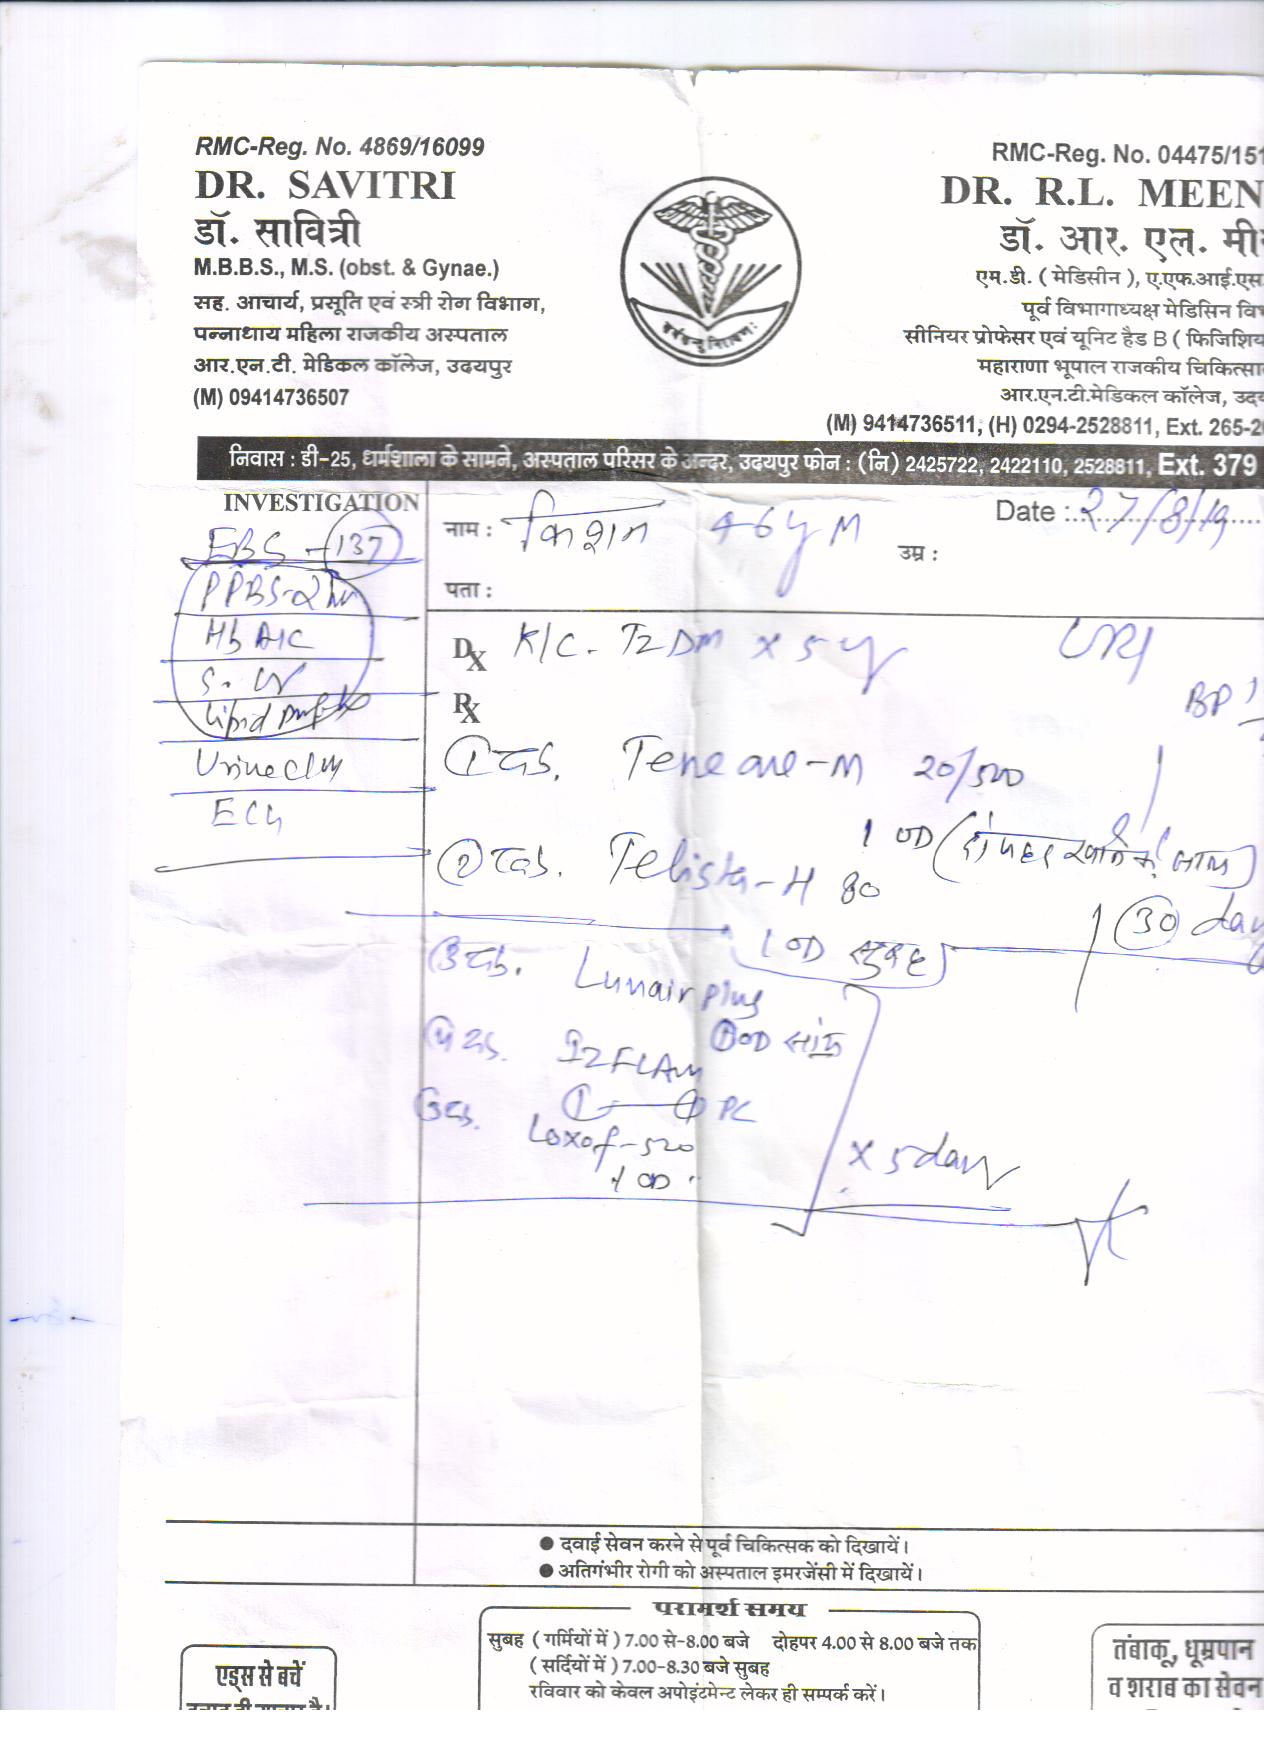 RMC-Reg. No. 4869/16099
DR. SAVITRI
डॉ. सावित्री
M.B.B.S., M.S. (obst. & Gynae.)
सह. आचार्य, प्रसूति एवं स्त्री रोग विभाग,
पन्नाधाय महिला राजकीय अस्पताल
आर.एन.टी. मेडिकल कॉलेज, उदयपुर
(M) 09414736507
RMC-Reg. No. 04475/151
DR. R.L. MEEN
डॉ. आर. एल. मी
एम.डी. ( मेडिसीन ), ए.एफ.आई.एस
पूर्व विभागाध्यक्ष मेडिसिन वि
सीनियर प्रोफेसर एवं यूनिट हैड B ( फिजिशिय
महाराणा भूपाल राजकीय चिकित्सा
आर.एन.टी.मेडिकल कॉलेज, उद
(M) 9414736511, (H) 0294-2528811, Ext. 265-2
निवास : डी-25, धर्मशाला के सामने, अस्पताल परिसर के अन्दर, उदयपुर फोन : (नि) 2425722, 2422110, 2528811, Ext. 379
INVESTIGATION
FBS - 137
PPBS-2hr
HbA1C
S. Cr
Lipid profile
Urine C/M
ECG
नाम : किशन 46y M
Date : 27/8/19
उम्र :
पता :
Dx K/C. T2DM x 5y
URI
BP
Rx
① टैब. Teneare-M 20/500
1 OD (दोपहर खाने के साथ)
② टैब. Telista-H 80
1 OD सुबह
30 day
③ टैब. Lunair plus
① OD सांय
④ टैब. IZFLAM
① — ① PC
टैब. Loxof-500
1 OD
x 5 day
● दवाई सेवन करने से पूर्व चिकित्सक को दिखायें।
● अतिगंभीर रोगी को अस्पताल इमरजेंसी में दिखायें।
परामर्श समय
सुबह ( गर्मियों में ) 7.00 से-8.00 बजे दोहपर 4.00 से 8.00 बजे तक
( सर्दियों में ) 7.00-8.30 बजे सुबह
रविवार को केवल अपोइंटमेन्ट लेकर ही सम्पर्क करें।
एड्स से बचें
तंबाकू, धूम्रपान
व शराब का सेवन